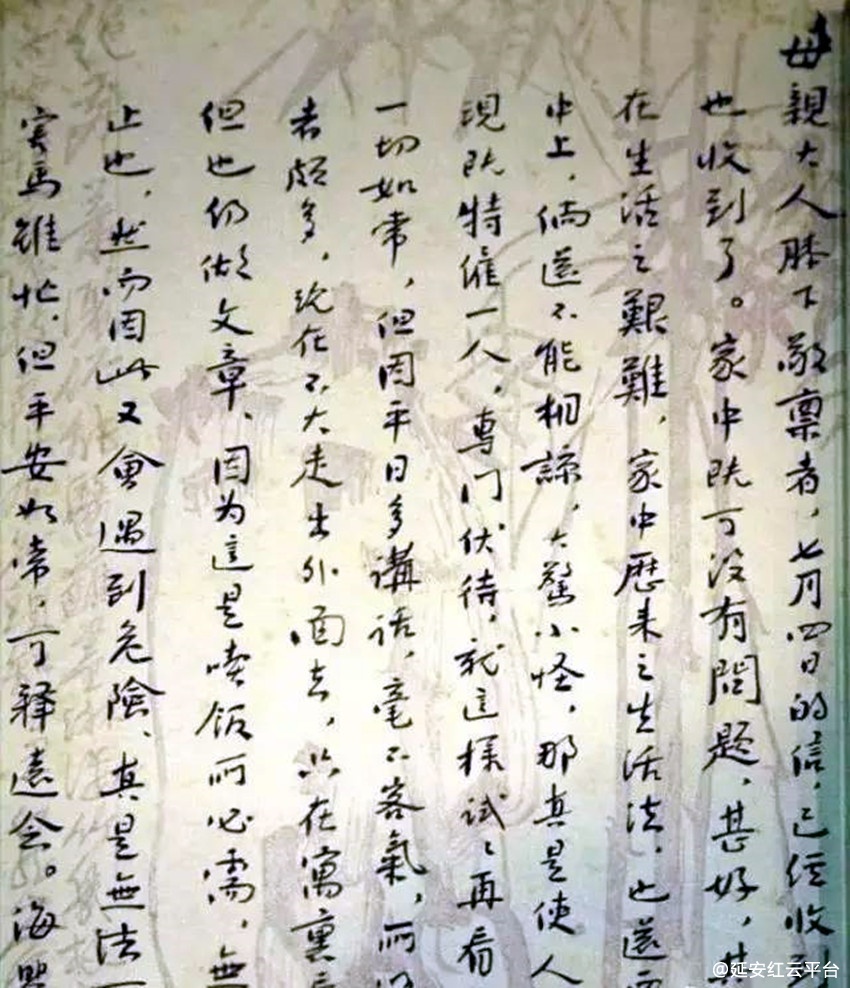 母親大人膝下敬稟者，七月四日的信，已经收到
也收到了。家中既可没有問題，甚好，其
在生活之艱難，家中歷来之生活法，也還要
中上，倘還不能相諒，大驚小怪，那真是使人
現既特僱一人，專門伏待，就這樣試試再看
一切如常，但因平日多講話，毫不客氣，所以
者頗多，现在不大走出外面去，只在寓裏
但也仍做文章，因为這是喫飯所必需，無
止也，然而因此又會遇到危險，真是無法
害馬雖忙，但平安如常，可釋遠念。海嬰
@延安红云平台